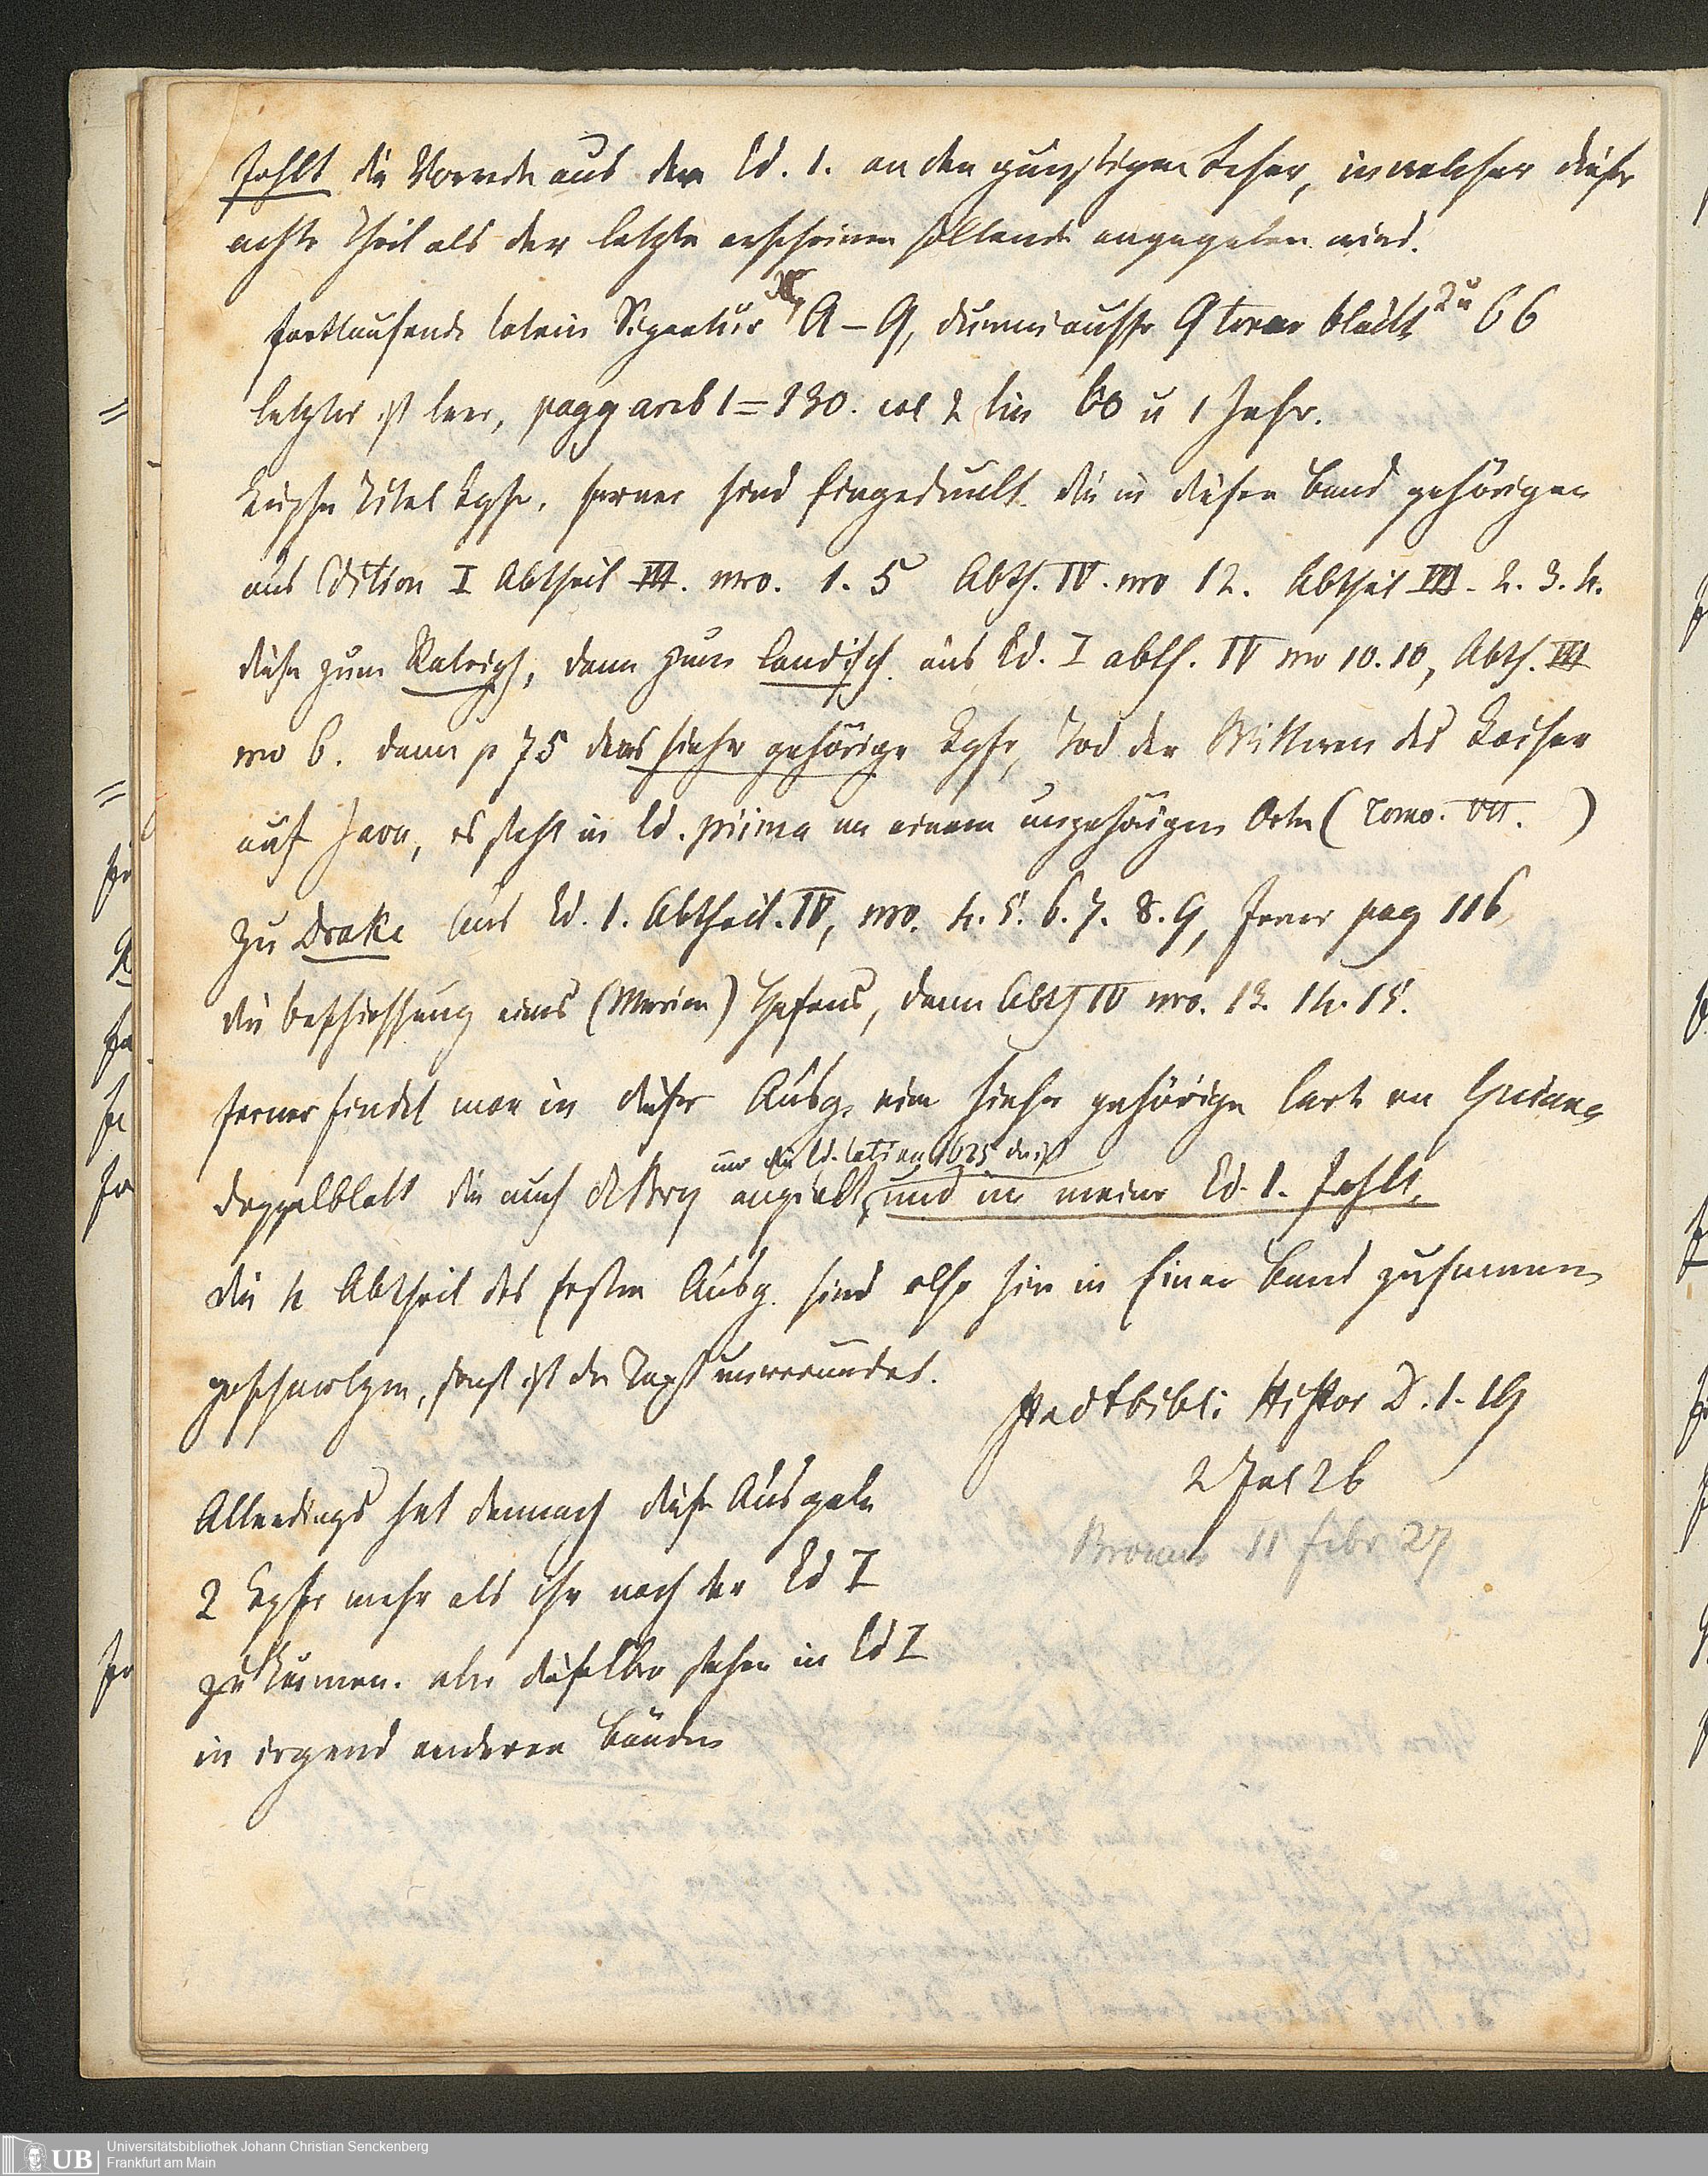 Fehlt die Vorrede aus der Ed. 1. an den günstigen Leser, in welcher dieser
achte Theil als der letzte erscheinen sollende angegeben wird.
fortlaufende latein Signatur A–Q, Blätt zu 66
letztes ist leer, pagg arab 1=130. col 2 lin 60 u 1 Zeile.
Titel Kpfr. ferner sind eingedruckt die in diesen Band gehörigen
aus Edition I Abtheil III. nro. 1. 5 Abth. IV. nro 12. Abtheil III. 2. 3. 4.
diese zum Raleigh, dann zum Candisch aus Ed. I abth. IV nro 10. 10, Abth. III
nro 6. dann p 75 das hieher gehörige Kpfr, Tod der Wittwen des Kaiser
auf Java, es steht in Ed. prima an einem ungehörigen Orte (Tomo. VII. )
zu Drake aus Ed. 1. Abtheil. IV, nro. 4. 5. 6. 7. 8. 9, ferner pag 116
die Beschiessung eines (Merian) Hafens, dann Abth IV nro. 13. 14. 15.
ferner findet man in dieser Ausg. eine hieher gehörige Cart von Guiana
nur die Ed. latina 1625
Doppelblatt die auch de Bry angiebt, und in meiner Ed. 1. fehlt.
die 4 Abtheil der Ersten Ausg. sind also hier in Einen Band zusammen
geschmolzen, sonst ist der Text unverändert.
Stadtbibl: Histor D. 1. 19
2 Jul 26
Allerdings hat demnach diese Ausgabe
Brönner 11 febr 27
2 Kpfr mehr als ihr nach der Ed I
zukommen. aber dieselben stehen in Ed I
in irgend anderen Bänden
UB Universitätsbibliothek Johann Christian Senckenberg
Frankfurt am Main